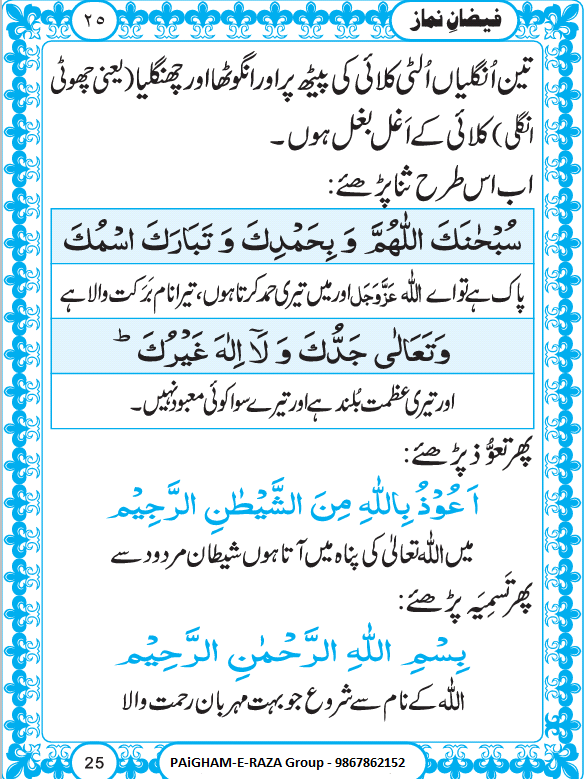 فیضانِ نماز
٢٥
تین اُنگلیاں اُلٹی کلائی کی پیٹھ پر اور انگوٹھا اور چھنگلیا (یعنی چھوٹی
انگلی) کلائی کے اَغل بغل ہوں۔
اب اس طرح ثنا پڑھئے:
سُبْحٰنَكَ اللّٰهُمَّ وَ بِحَمْدِكَ وَ تَبَارَكَ اسْمُكَ
پاک ہے تو اے اللہ عَزَّوَجَل اور میں تیری حمد کرتا ہوں، تیرا نام بَرَکت والا ہے
وَتَعَالٰی جَدُّكَ وَ لَآ اِلٰهَ غَیْرُكَ ؕ
اور تیری عظمت بُلند ہے اور تیرے سوا کوئی معبود نہیں۔
پھر تعوُّذ پڑھئے:
اَعُوْذُ بِاللّٰهِ مِنَ الشَّیْطٰنِ الرَّجِیْمِ
میں اللہ تعالیٰ کی پناہ میں آتا ہوں شیطان مردود سے
پھر تَسمِیَہ پڑھئے:
بِسْمِ اللّٰهِ الرَّحْمٰنِ الرَّحِیْمِ
اللہ کے نام سے شروع جو بہت مہربان رحمت والا
25
PAiGHAM-E-RAZA Group - 9867862152